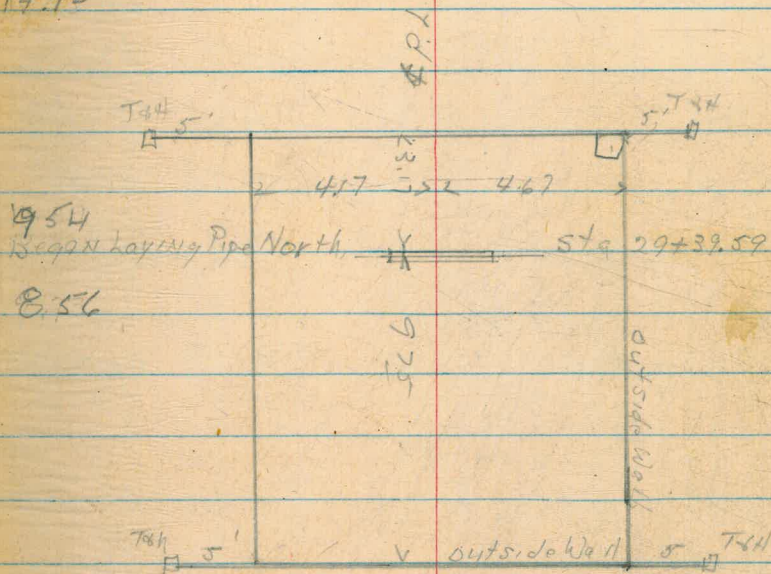 T&H 5' 5' T&H
4.67
954
Began Laying Pipe North Sta 29+39.59
8.56
9.75
outside Wall
T&h 5' outside Wall 5 T&H